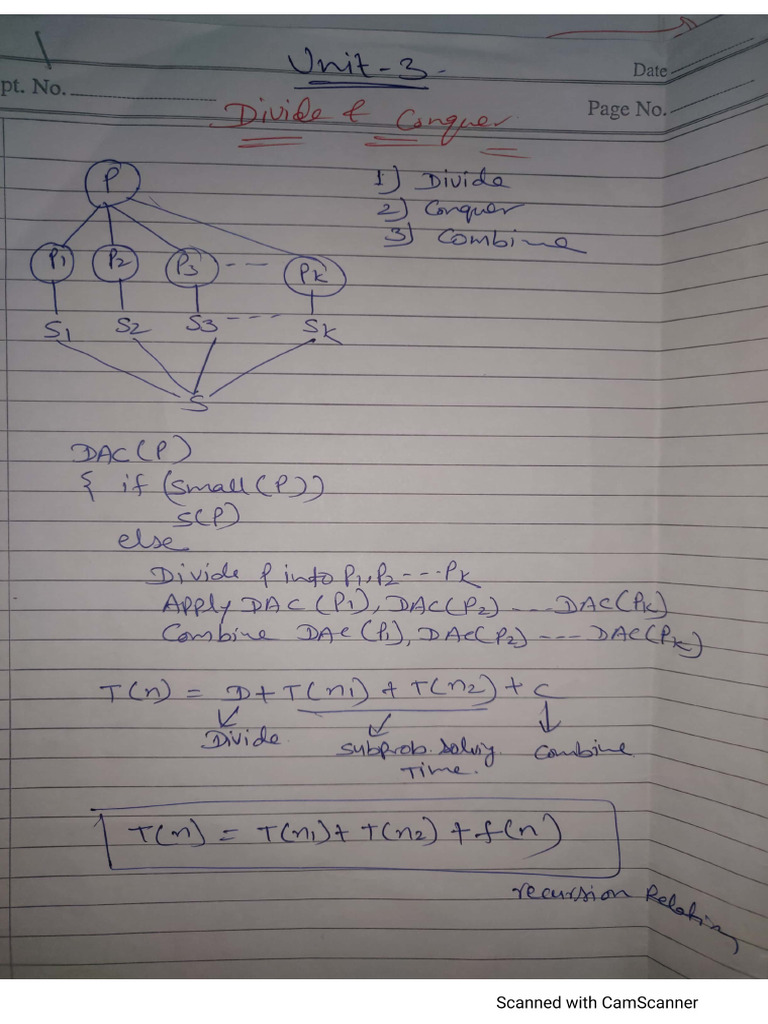 Unit-3.
Date
pt. No.
Page No.
Divide & Conquer
P
1) Divide
2) Conquer
3) Combine
P1 P2 P3 --- PK
S1 S2 S3 ---- SK
S
DAC(P)
{ if (small(P))
S(P)
else
Divide P into P1, P2 --- PK
Apply DAC (P1), DAC(P2) --- DAC(PK)
Combine DAC(P1), DAC(P2) --- DAC(PK)
T(n) = D + T(n1) + T(n2) + C
Divide. Subprob. Solvy. Time. Combine
T(n) = T(n1) + T(n2) + f(n)
recursion Relation
Scanned with CamScanner